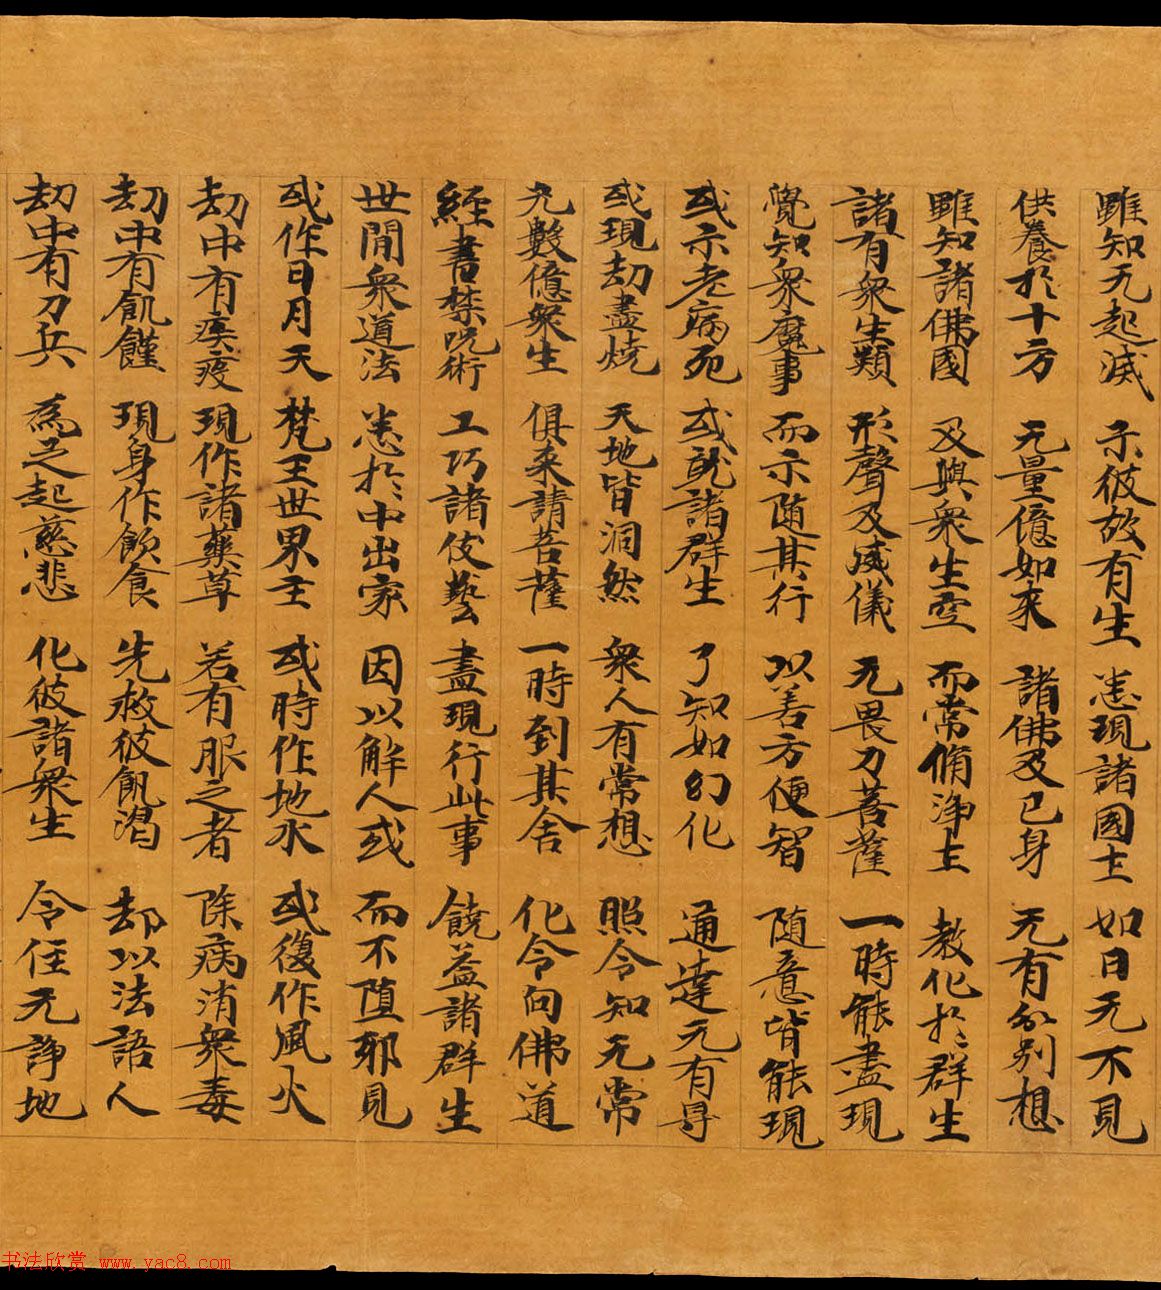 雖知无起滅 示彼故有生 悉現諸國土 如日无不見
供養於十方 无量億如來 諸佛及己身 无有分別想
雖知諸佛國 及與衆生空 而常脩淨土 教化於群生
諸有衆生類 形聲及威儀 无畏力菩薩 一時能盡現
覺知衆魔事 而示隨其行 以善方便智 隨意皆能現
或示老病死 或就諸群生 了知如幻化 通達无有㝵
或現劫盡燒 天地皆洞然 衆人有常想 照令知无常
无數億衆生 俱來請菩薩 一時到其舍 化令向佛道
經書禁呪術 工巧諸伎藝 盡現行此事 饒益諸群生
世間衆道法 悉於中出家 因以解人或 而不墮邪見
或作日月天 梵王世界主 或時作地水 或復作風火
劫中有疾疫 現作諸藥草 若有服之者 除病消衆毒
劫中有飢饉 現身作飲食 先救彼飢渴 却以法語人
劫中有刀兵 為之起慈悲 化彼諸衆生 令住无諍地
书法欣赏 www.yac8.com